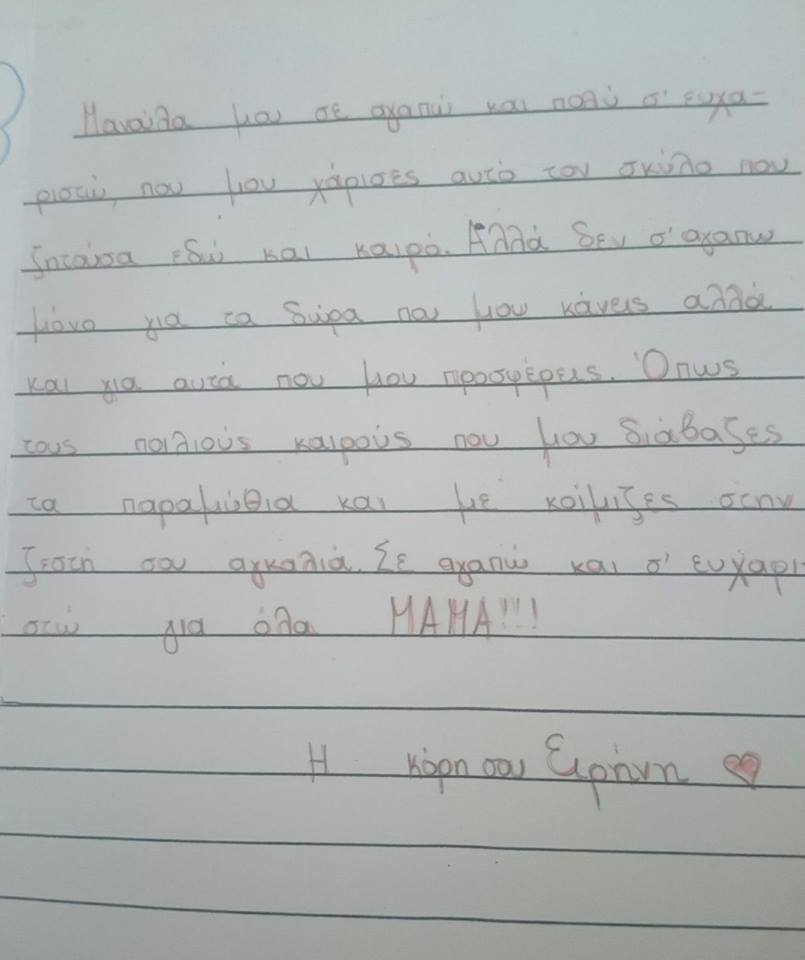 Μανούλα μου σε αγαπώ και πολύ σ' ευχα-
ριστώ, που μου χάρισες αυτό τον σκύλο που
ζητούσα εδώ και καιρό. Αλλά δεν σ' αγαπω
μόνο για τα δώρα που μου κάνεις αλλά
και για αυτά που μου προσφέρεις. Όπως
τους παλιούς καιρούς που μου διάβαζες
τα παραμύθια και με κοίμιζες στην
ζεστή σου αγκαλιά. Σε αγαπώ και σ' ευχαρι-
στώ για όλα ΜΑΜΑ!!!
Η κόρη σου Ειρήνη